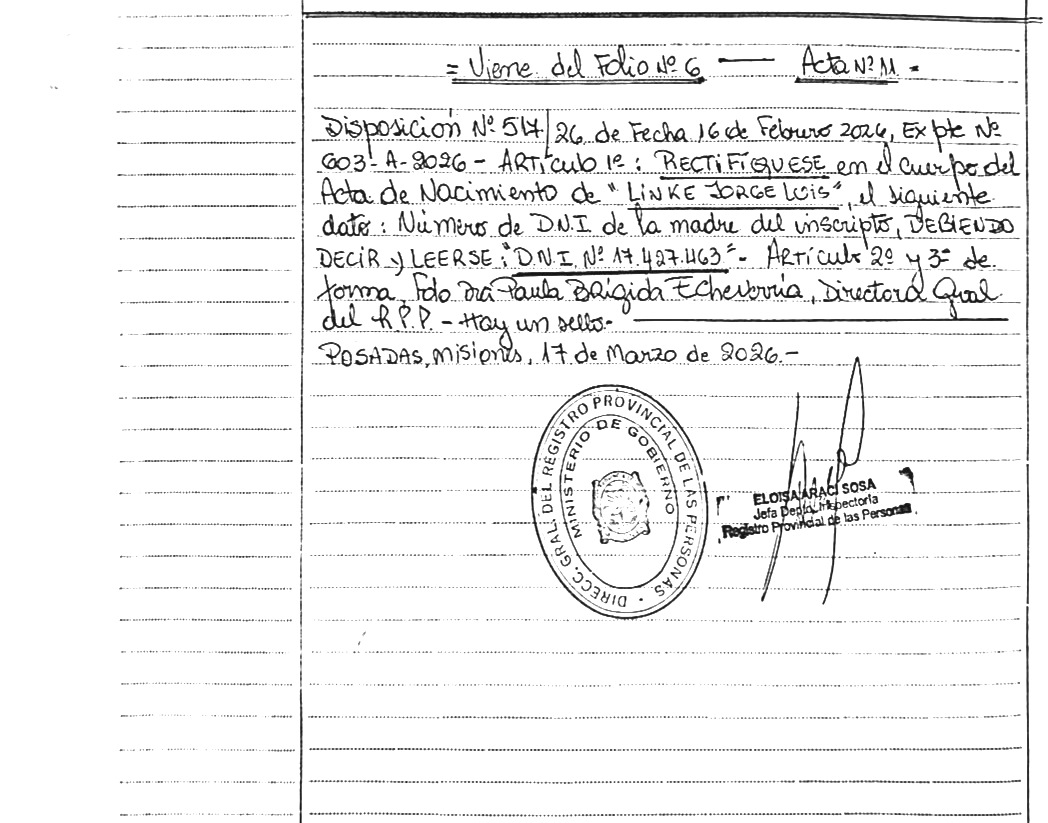 = Viene del Folio Nº 6 — Acta Nº 11 =
Disposición Nº 517/26 de Fecha 16 de Febrero 2026, Expte Nº
603-A-2026 - ARTÍCULO 1º: RECTIFÍQUESE en el cuerpo del
Acta de Nacimiento de "LINKE JORGE LUIS", el siguiente
dato: Número de D.N.I de la madre del inscripto, DEBIENDO
DECIR Y LEERSE: "D.N.I. Nº 17.427.463"- Artículo 2º y 3º de
forma, Fdo Dra Paula Brígida Echeverría, Directora Gral.
del R.P.P. - Hay un sello.-
POSADAS, Misiones, 17 de Marzo de 2026.-
DIRECC. GRAL. DEL REGISTRO PROVINCIAL DE LAS PERSONAS
MINISTERIO DE GOBIERNO
ELOISA ARACI SOSA
Jefa Depto. Inspectoría
Registro Provincial de las Personas